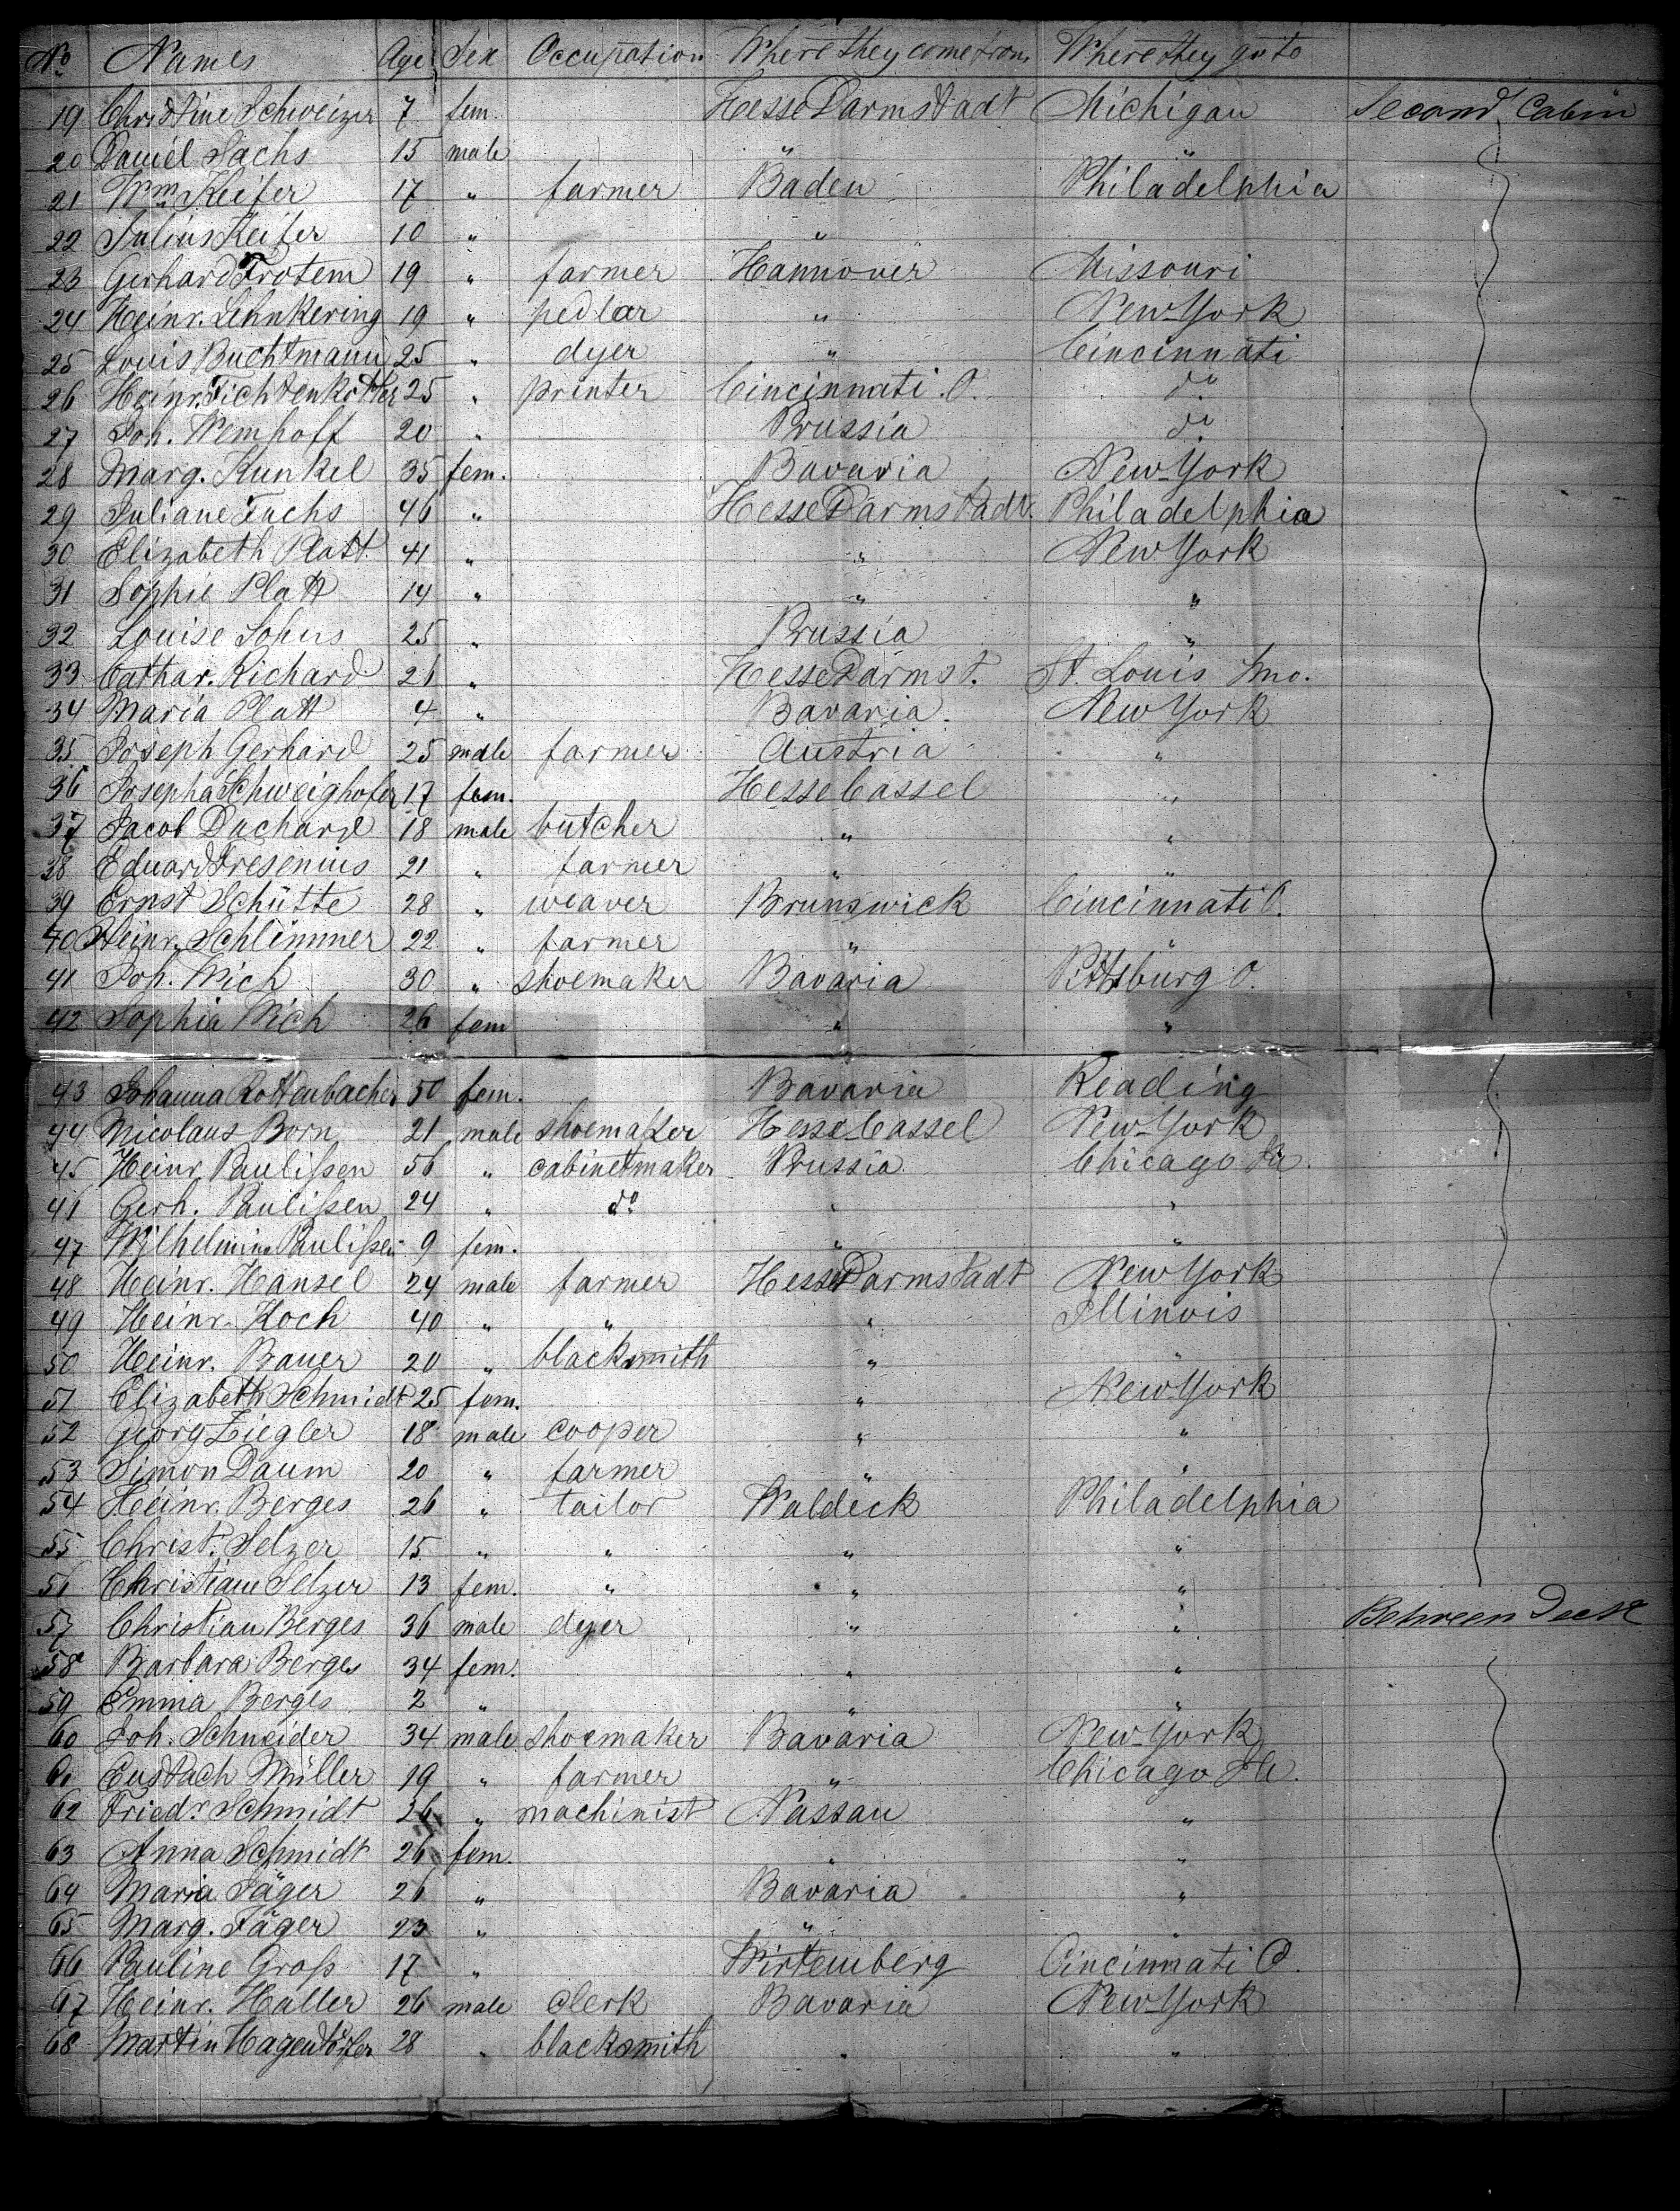 No Names Age Sex Occupation Where they come from Where they go to
19 Christine Schweizer 7 fem. Hesse Darmstadt Michigan Second Cabin
20 Daniel Sachs 15 male " "
21 Wm Keifer 17 " farmer Baden Philadelphia
22 Julius Keifer 10 " "
23 Gerhard Frotem 19 " farmer Hannover Missouri
24 Heinr. Lehnkering 19 " pedlar " New-York
25 Louis Buchtmann 25 " dyer " Cincinnati
26 Heinr. 25 " printer Cincinnati O. do
27 Joh. Wemhoff 20 " Prussia do
28 Marg. Kunkel 35 fem. Bavaria New-York
29 Juliane Fuchs 46 " Hesse Darmstadt. Philadelphia
30 Elizabeth Platt 41 " " New York
31 Sophie Platt 14 " " "
32 Louise Johns 25 " Prussia "
33 Cathar. Richard 26 " Hesse Darmst. St. Louis Mo.
34 Maria Platt 4 " Bavaria. New York
35 Joseph Gerhard 25 male farmer Austria "
36 Josepha Schweighofer 17 fem. Hesse Cassel "
37 Jacob Duchard 18 male butcher " "
38 Eduard Fresenius 21 " farmer " "
39 Ernst Schütte 28 " weaver Brunswick Cincinnati O.
40 Heinr. Schlimmer 22 " farmer " "
41 Joh. Wich 30 " shoemaker Bavaria Pittsburg O.
42 Sophia Wich 26 fem " "
43 Johanna Rottenbacher 50 fem. Bavaria Reading
44 Nicolaus Born 21 male shoemaker Hesse Cassel New-York
45 Heinr. Paulißen 56 " cabinetmaker Prussia Chicago
41 Gerh. Paulißen 24 " do " "
47 Wilhelmine Paulißen 9 fem. " "
48 Heinr. Hansel 24 male farmer Hesse Darmstadt New York
49 Heinr. Koch 40 " " " Illinois
50 Heinr. Bauer 20 " blacksmith " "
51 Elizabeth Schmidt 25 fem. " New-York
52 Georg Ziegler 18 male cooper " "
53 Simon Daum 20 " farmer " "
54 Heinr. Berges 26 " tailor Waldeck Philadelphia
55 Christ. Selzer 15 " " " "
56 Christiane Selzer 13 fem. " " "
57 Christian Berges 36 male dyer " " Between Deck
58 Barbara Berges 34 fem. " "
59 Emma Berges 2 " " "
60 Joh. Schneider 34 male shoemaker Bavaria New-York
61 Eustach Müller 19 " farmer " Chicago Ill.
62 Friedr. Schmidt 26 " machinist Nassau "
63 Anna Schmidt 26 fem. " "
64 Maria Jäger 26 " Bavaria "
65 Marg. Jäger 23 " " "
66 Pauline Groß 17 " Wirtemberg Cincinnati O.
67 Heinr. Haller 26 male clerk Bavaria New-York
68 Martin 28 " blacksmith " "